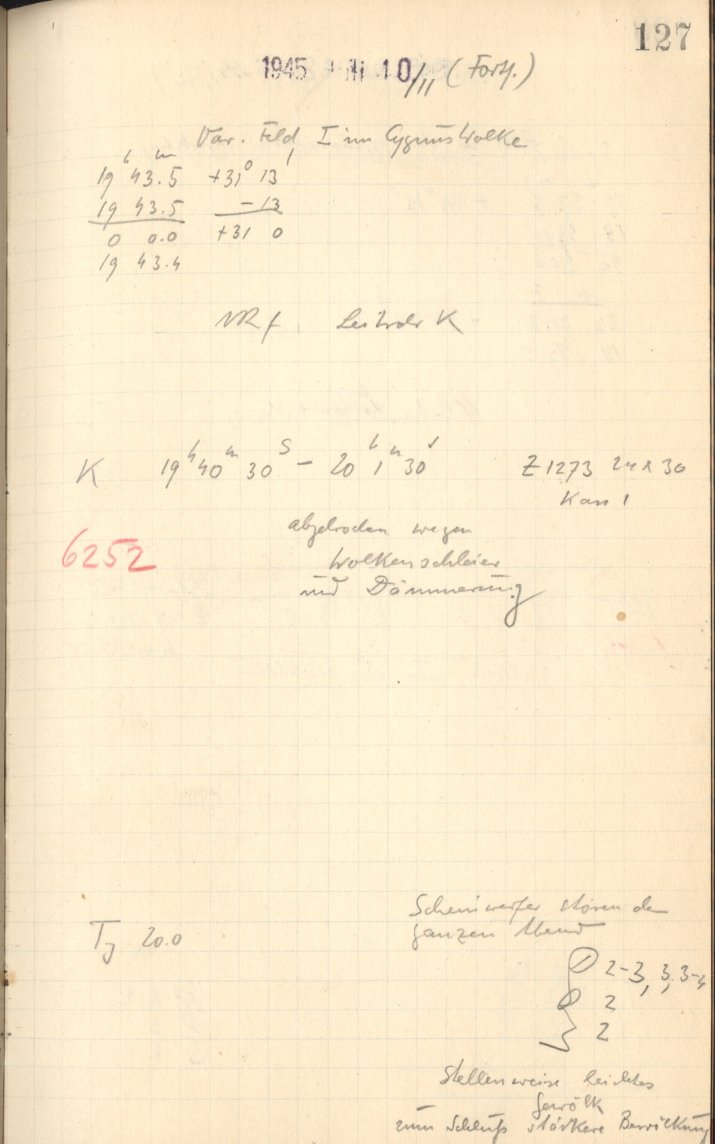 127
1945 10/11 (Forts.)
Var. Feld I im Cygnus Wolke
19 h 43.5 m +31° 13'
19 43.5 -13
0 0.0 +31 0
19 43.4
K
K 19 h 40 m 30 s - 20 h 1 m 30 s Z 1273 24 x 30
Kass 1
abgebrochen wegen
6252
Wolkenschleier
und Dämmerung
Scheinwerfer stören den
T 20.0 ganzen Abend
2-3, 3, 3-4
2
2
Stellenweise leichtes
Gewölk
zum Schluß stärkere Bewölkung